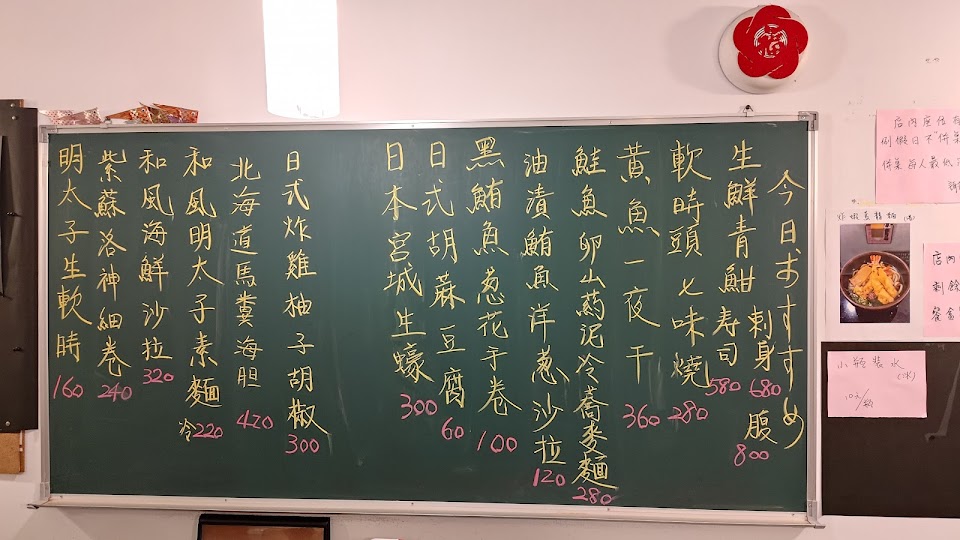 今日おすすめ
生鮮青魽 刺身 680
壽司 580
腹 800
軟時頭七味燒 280
黃魚一夜干 360
鮭魚卵山葯泥冷蕎麥麵 280
油漬鮪魚洋葱沙拉 120
黑鮪魚葱花手卷 100
日式胡蔴豆腐 60
日本宮城生蠔 300
日式炸雞柚子胡椒 300
北海道馬糞海胆 420
和風明太子素麵 冷220
和風海鮮沙拉 320
紫蘇洛神細卷 240
明太子生軟時 160
店內座位有
別假日不"併桌
併桌每人最低
店內
剩餘
餐盒
小瓶裝水
(冰)
10元/瓶